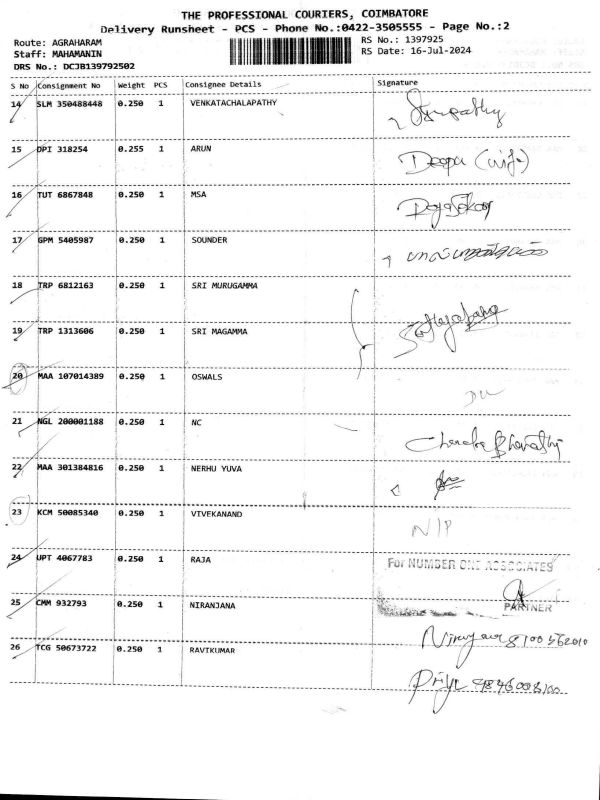 THE PROFESSIONAL COURIERS, COIMBATORE
Delivery Runsheet - PCS - Phone No.:0422-3505555 - Page No.:2
Route: AGRAHARAM
Staff: MAHAMANIN
DRS No.: DCJB139792502
RS No.: 1397925
RS Date: 16-Jul-2024
S No Consignment No Weight PCS Consignee Details Signature
14 SLM 350488448 0.250 1 VENKATACHALAPATHY
15 DPI 318254 0.255 1 ARUN Deepa (wife)
16 TUT 6867848 0.250 1 MSA
17 GPM 5405987 0.250 1 SOUNDER
18 TRP 6812163 0.250 1 SRI MURUGAMMA
19 TRP 1313606 0.250 1 SRI MAGAMMA
20 MAA 107014389 0.250 1 OSWALS
21 NGL 200001188 0.250 1 NC
22 MAA 301384816 0.250 1 NERHU YUVA
23 KCM 50085340 0.250 1 VIVEKANAND N/P
24 UPT 4067783 0.250 1 RAJA For NUMBER ONE ASSOCIATES
PARTNER
25 CMM 932793 0.250 1 NIRANJANA
26 TCG 50673722 0.250 1 RAVIKUMAR